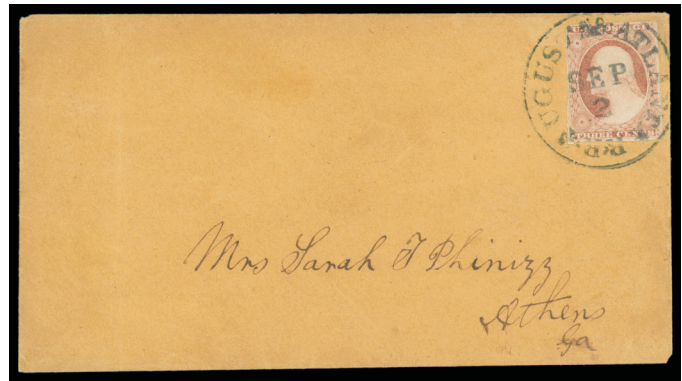 AUGUSTA & ATLANTA R.R.
SEP
2
THREE CENTS
Mrs Sarah T Phinizy
Athens
Ga